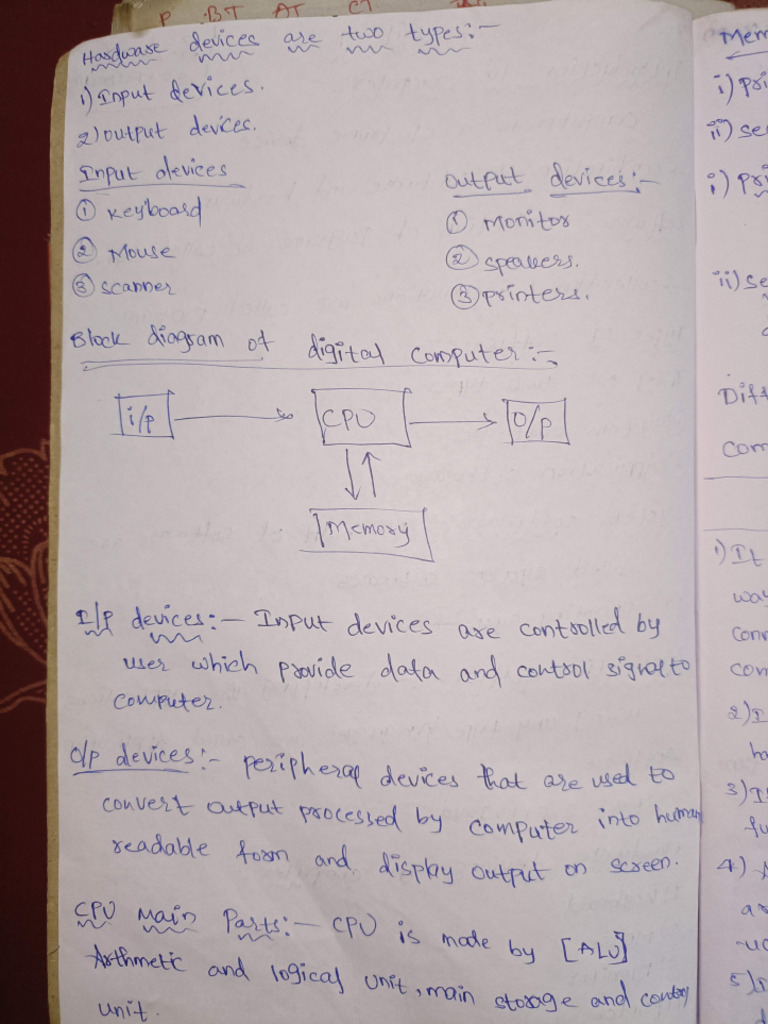 P BT AT CT
Hardware devices are two types:-
1) Input devices.
2) output devices.
Input devices
① Keyboard
② Mouse
③ scanner
output devices:-
① Monitor
② speakers.
③ printers.
Block diagram of digital computer:-
i/p
CPU
O/p
Memory
I/p devices:- Input devices are controlled by
user which provide data and control signal to
computer.
O/p devices:- peripheral devices that are used to
convert output processed by computer into human
readable form and display output on screen.
CPU Main Parts:- CPU is made by [ALU]
Arthmetic and logical unit, main storage and control
unit.
Mem
i) pri
ii) se
i) pri
ii) se
Diff
com
1) It
way
conn
com
2) I
ha
3) It
fu
4)
as
5)